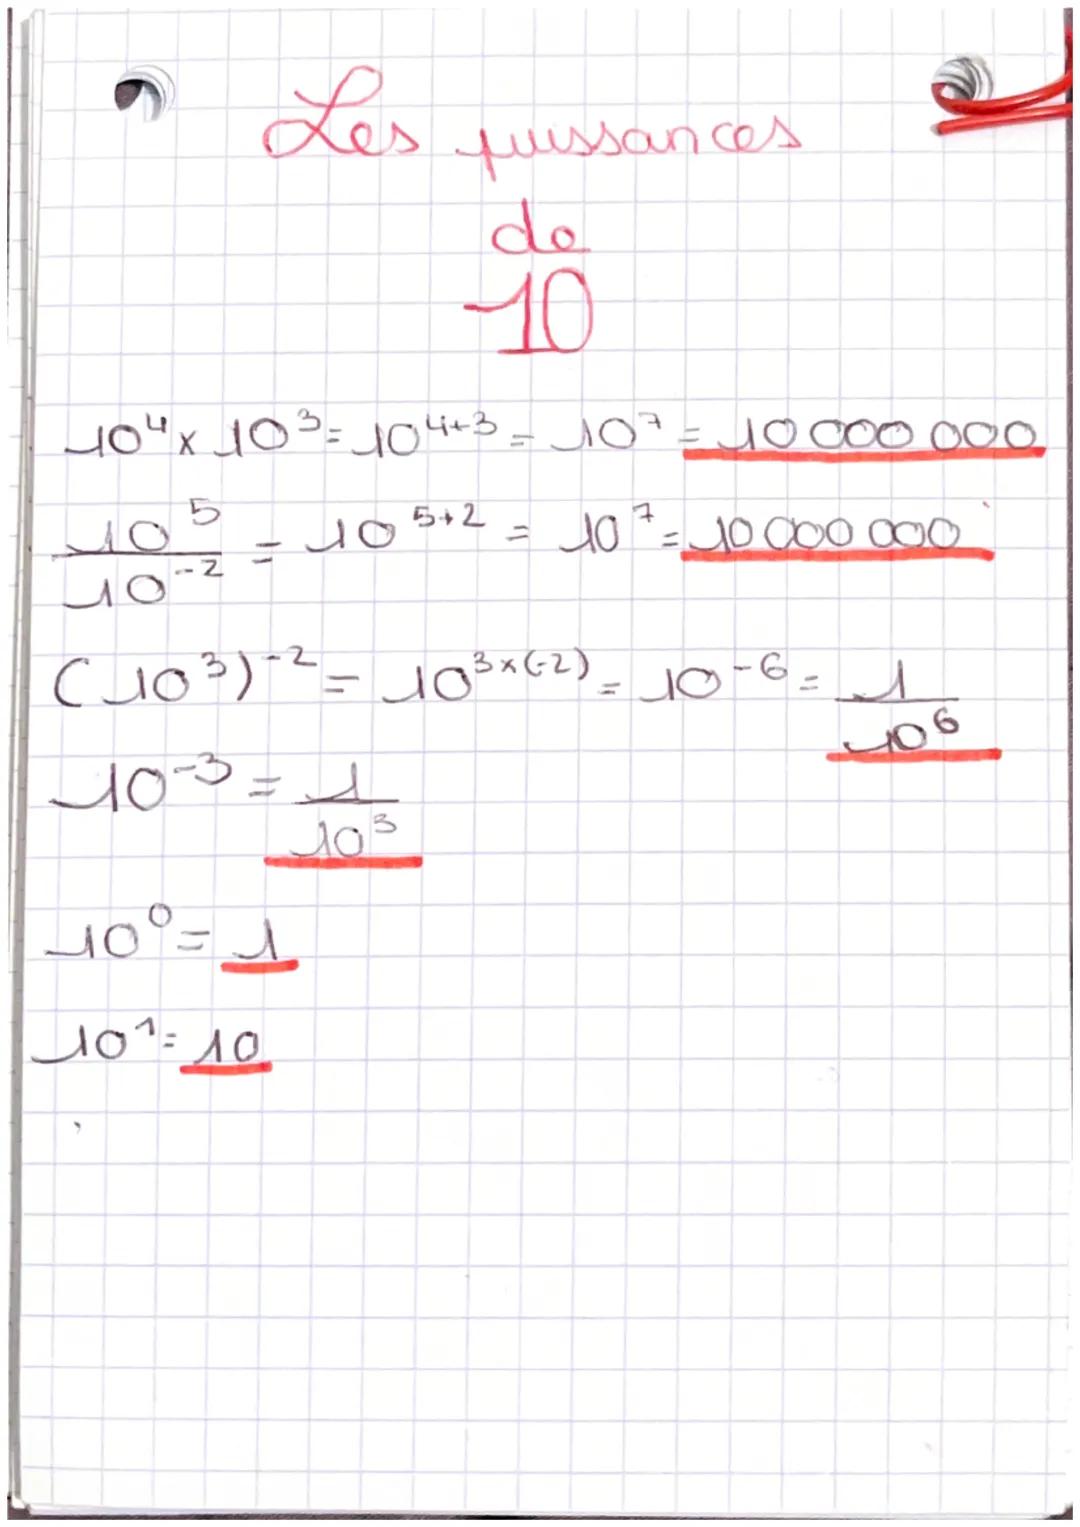 Les puissances
de
10
10⁴ x 10³ = 10⁴⁺³ = 10⁷ = 10 000 000
10⁵/10⁻² = 10⁵⁺² = 10⁷ = 10 000 000
(10³)⁻² = 10^3x(-2) = 10⁻⁶ = 1/10⁶
10⁻³ = 1/10³
10⁰ = 1
10¹ = 10